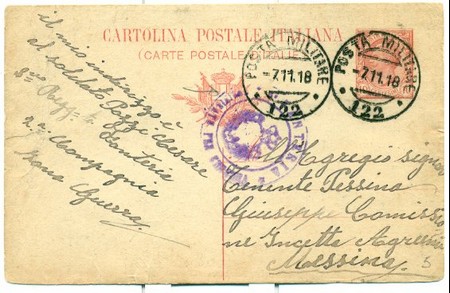 CARTOLINA POSTALE ITALIANA
(CARTE POSTALE D'ITALIE)
POSTA MILITARE
-7.11.18
122
POSTA MILITARE
-7.11.18
122
il mio indirizzo è
al soldato Pozzi Cesare
Regg. Fanteria
2a Compagnia
Zona Guerra
Al Pregio signor
Tenente Pessina
Giuseppe Commissio
ne Incetta Agrumi
Messina